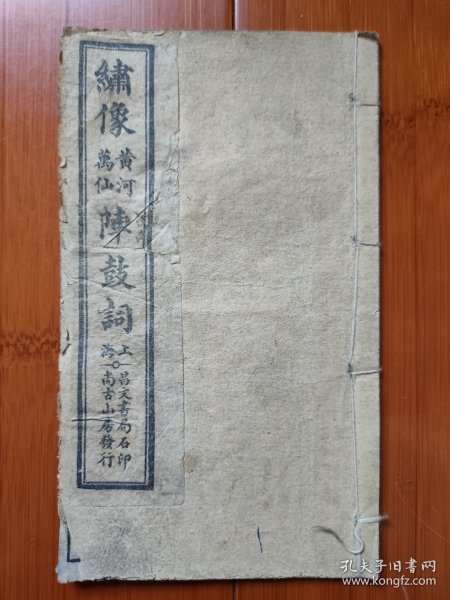 繡像
黄河
萬仙
陣鼓詞
上海
昌文書局石印
尚古山房發行
孔夫子旧书网
www.kongfz.com